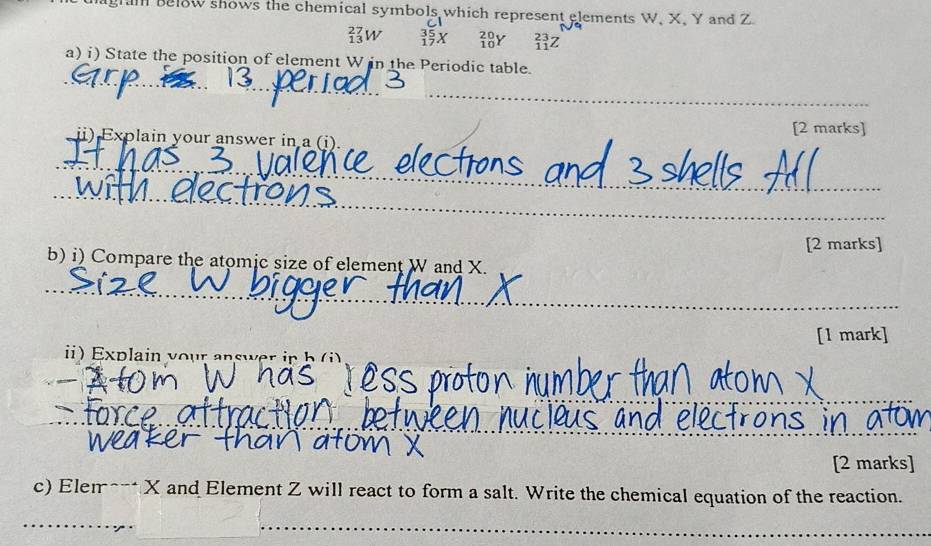 diagram below shows the chemical symbols which represent elements W, X, Y and Z.
Cl Na
²⁷₁₃W ³⁵₁₇X ²⁰₁₀Y ²³₁₁Z
a) i) State the position of element W in the Periodic table.
Grp 13 period 3
[2 marks]
ii) Explain your answer in a (i).
It has 3 valence electrons and 3 shells All
with electrons
[2 marks]
b) i) Compare the atomic size of element W and X.
Size W bigger than X
[1 mark]
ii) Explain your answer in b (i)
- Atom W has less proton number than atom X
- force attraction between nucleus and electrons in atom
weaker than atom X
[2 marks]
c) Element X and Element Z will react to form a salt. Write the chemical equation of the reaction.